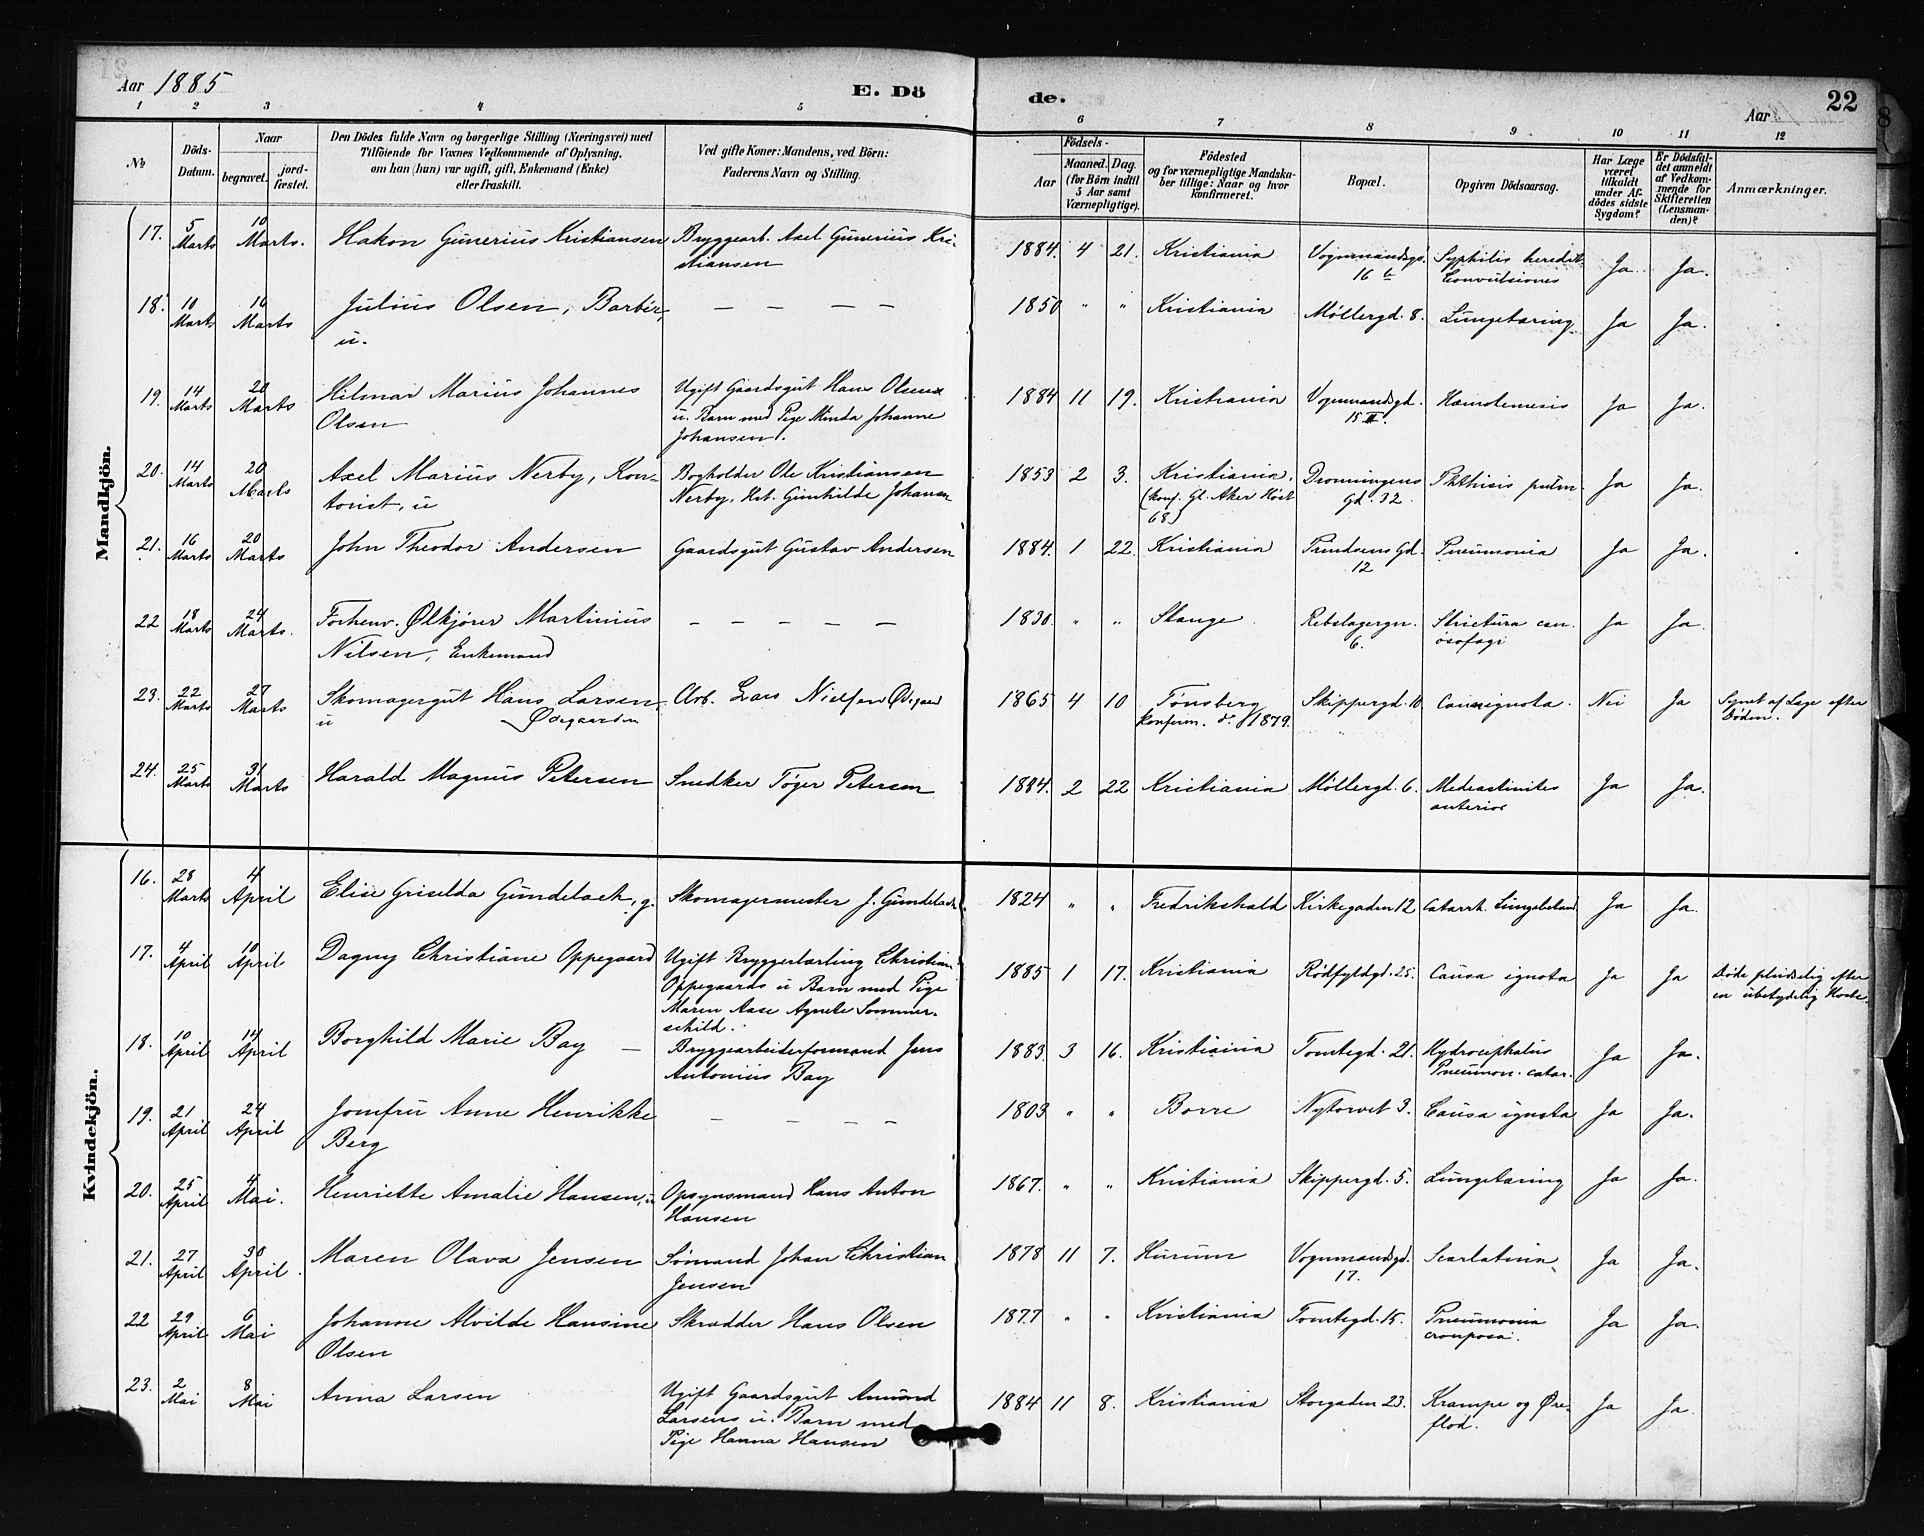 Aar 1885
E. Dö de.
Aar
22
1 2 3 4 5 6 7 8 9 10 11 12
No
Döds-Datum.
Naar
begravet.
jord-fæstet.
Den Dödes fulde Navn og borgerlige Stilling (Næringsvei) med
Tilföiende for Voxnes Vedkommende af Oplysning,
om han (hun) var ugift, gift, Enkemand (Enke)
eller fraskilt.
Ved gifte Koner: Mandens, ved Börn:
Faderens Navn og Stilling.
Födsels-
Aar
Maaned. Dag.
(for Börn indtil
5 Aar samt
Værnepligtige).
Födested
og for værnepligtige Mandska-
ber tillige: Naar og hvor
konfirmeret.
Bopæl.
Opgiven Dödsaarsag.
Har Læge
været
tilkaldt
under Af-
dödes sidste
Sygdom?
Er Dödsfal-
det anmeldt
af Vedkom-
mende for
Skifteretten
(Lensman-
den)?
Anmærkninger.
Mandkjön.
17. 5 Marts 10 Marts. Hakon Gunerius Kristiansen Bryggearb. Axel Gunerius Kri-
stiansen 1884. 4 21. Kristiania Vognmandsgd. 16 b Syphilis heredit. Convulsiones Ja Ja.
18. 10 Marts 16 Marts Julius Olsen, Barbér, — — — — 1850 " " Kristiania Møllergd. 8. Lungetæring Ja Ja.
u.
19. 14 Marts 20 Marts Hilmar Marius Johannes Ugift Gaardsgut Hans Olsens 1884 11 19. Kristiania Vognmandsgd. 15 II. Hæmatemesis Ja Ja.
Olsen u. Barn med Pige Minda Johanne
Johansen.
20. 14 Marts 20 Marts Axel Marius Nerby, Kon- Bogholder Ole Kristiansen 1853 2 3. Kristiania, Dronningens Gd. 32. Phthisis pulm. Ja Ja.
torist, u Nerby, Gunhilde Johansen (konf. Gl. Aker Høst
68)
21. 16 Marts 20 Marts John Theodor Andersen Gaardsgut Gustav Andersen 1884. 1 22. Kristiania Prindsens Gd. 12 Pneumonia Ja Ja.
22 18 Marts 24 Marts. Forhenv. Ølkjører Martinius — — — — — 1830. " " Stange Rebslagergn. 6. Strictura can. Ja Ja.
Nilsen, Enkemand øsofagi
23. 22 Marts 27 Marts Skomagergut Hans Larsen, Arb. Lars Nielsen Ødegaard 1865 4 10 Tønsberg Skippergd. 10 Caus. ignota. Nei Ja Synet af Læge efter
u Ødegaarden konfirm. 1879. Døden.
24. 25 Marts 31 Marts Harald Magnus Petersen Snedker Tøger Petersen 1884. 2 22 Kristiania Møllergd. 6. Mediastinites Ja Ja.
anterior
Kvindekjön.
16. 28 Marts 4 April Elise Griselda Gundelach, g. Skomagermester J. Gundelach. 1824 " " Fredrikshald Kirkegaden 12 Catarrh. Lungebetænd. Ja Ja.
17. 4 April 10 April Dagny Christiane Oppegaard Ugift Bryggerlærling Christian 1885 1 17. Kristiania Rødfyldgd. 25. Causa ignota Ja Ja Døde pludselig efter
Oppegaards u Barn med Pige en ubetydelig Hoste.
Maren Aase Agnete Sommer-
schild.
18. 10 April 14 April Borghild Marie Bay — Bryggearbeiderformand Jens 1883. 3 16. Kristiania Tomtegd. 21. Hydrocephalus Ja Ja.
Antonius Bay Pneumon. catar.
19. 21 April 24 April Jomfru Anne Henrikke — — — — 1803 " " Borre Nytorvet 3. Causa ignota Ja Ja.
Berg
20. 25 April 4 Mai. Henriette Amalie Hansen, u Opsynsmand Hans Anton 1867. " " Kristiania Skippergd. 5. Lungetæring Ja Ja.
Hansen
21. 27 April 30 April. Maren Olava Jensen Sømand Johan Christian 1878 11 7. Hurum Vognmandsgd. 17. Scarlatina Ja Ja.
Jensen
22 29 April 6 Mai Johanne Alvilde Hansine Skrædder Hans Olsen 1877 " " Kristiania Tomtegd. 15. Pneumonia Ja Ja.
Olsen crouposa.
23. 2 Mai 8 Mai Anna Larsen Ugift Gaardsgut Amund 1884 11 8. Kristiania Storgaden 23. Krampe og Øre- Ja Ja.
Larsens u. Barn med flod.
Pige Hanna Hansen